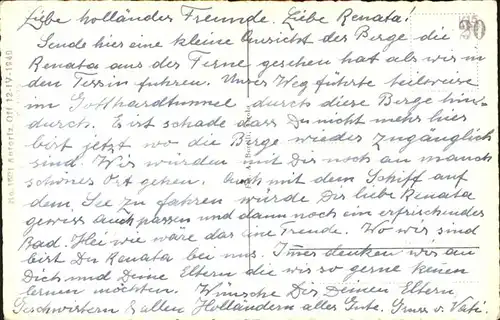 Liebe holländer Freunde. Liebe Renata!
Sende hier eine kleine Ansicht der Berge die
Renata aus der Ferne gesehen hat als wir in
den Tessin fuhren. Unser Weg führte teilweise
im Gotthardtunnel durch diese Berge hin-
durch. Es ist schade dass Du nicht mehr hier
bist jetzt wo die Berge wieder zugänglich
sind. Wir würden mit Dir noch an manch
schönes Ort gehen. Auch mit dem Schiff auf
dem See zu fahren würde Dir liebe Renata
gewiss auch passen und dann noch ein erfrischendes
Bad. Hei wie wäre das eine Freude. Wo wir sind
bist Du Renata bei uns. Immer denken wir an
Dich und Deine Eltern die wir so gerne kenen
lernen möchten. Wünsche Dir Deinen Eltern
Geschwistern & allen Holländern alles Gute. Gruss v. Vati.
20